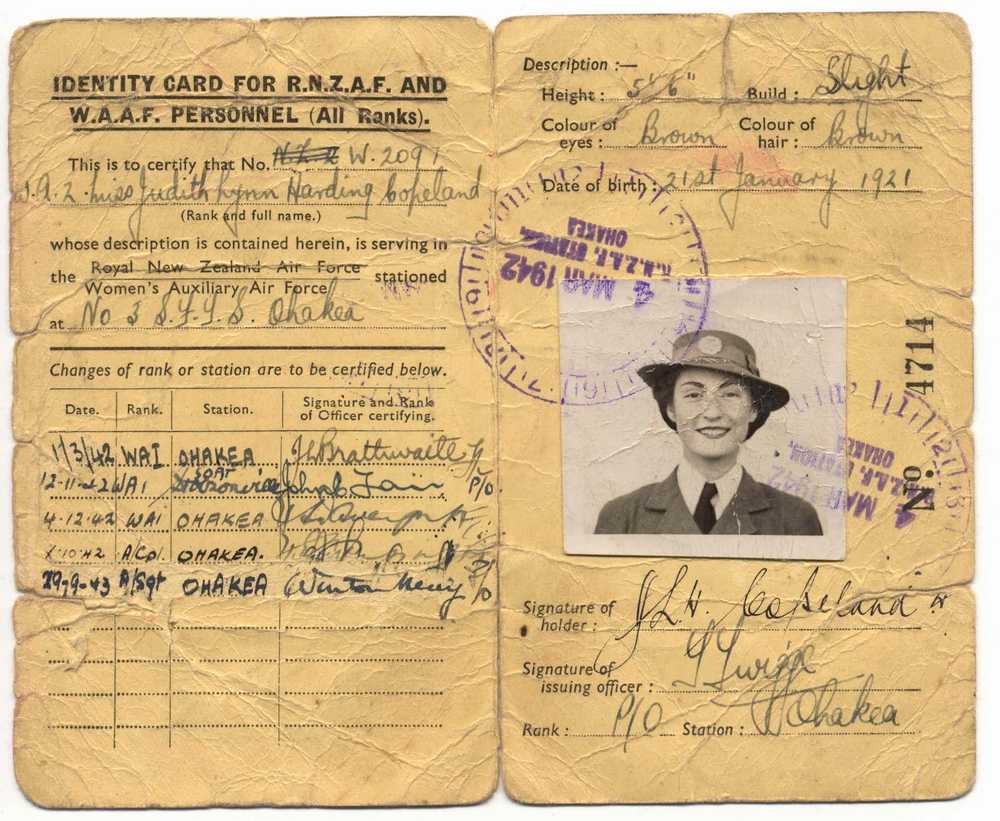 IDENTITY CARD FOR R.N.Z.A.F. AND
W.A.A.F. PERSONNEL (All Ranks).
This is to certify that No. N.Z.2 W.2091
W.A.2. Miss Judith Lynn Harding Copeland
(Rank and full name.)
whose description is contained herein, is serving in
the Royal New Zealand Air Force stationed
Women's Auxiliary Air Force
at No 3 S.F.T.S. Ohakea
Changes of rank or station are to be certified below.
Date. Rank. Station. Signature and Rank of Officer certifying.
1/3/42 WAI OHAKEA JLBrathwaite
12-11-42 WAI P/O
4-12-42 WAI OHAKEA
10-42 A/Cpl. OHAKEA.
29-9-43 A/Sgt OHAKEA Winton F/O
Description :—
Height : 5' 6" Build : Slight
Colour of eyes : Brown Colour of hair : Brown
Date of birth : 21st January 1921
R.N.Z.A.F. STATION,
OHAKEA
4 MAR 1942
R.N.Z.A.F. STATION,
OHAKEA
4 MAR 1942
No 4714
Signature of holder : J.L.H. Copeland
Signature of issuing officer :
Rank : P/O Station : Ohakea